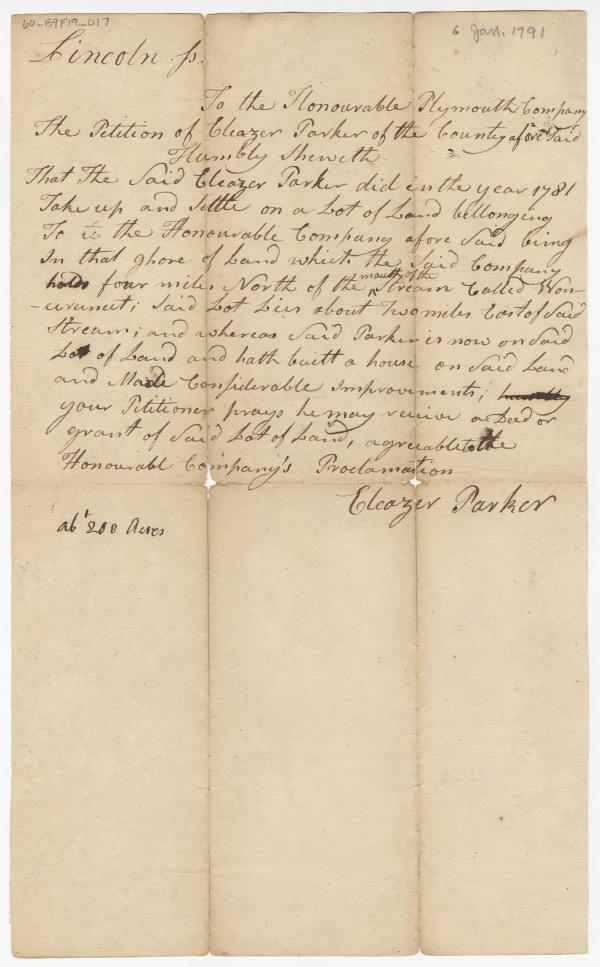 60-B9F19_017
6 Jan. 1791
Lincoln ss.
To the Honourable Plymouth Company
The Petition of Eleazer Parker of the County afore Said
Humbly Sheweth
That The Said Eleazer Parker did in the year 1781
Take up and Settle on a Lot of Land bellonging
To the Honourable Company afore Said being
In that ghore of Land which the Said Company
holds four miles North of the mouth of the Stream Called Won-
-curanut; Said Lot Lies about two miles East of Said
Stream; and whereas Said Parker is now on Said
Lot of Land and hath built a house on Said Land
and Made Considerable Improvements; humbly
your Petitioner prays he may receive a Dead or
grant of Said Lot of Land, agreeable to the
Honourable Company's Proclamation
Eleazer Parker
abt 200 Acres